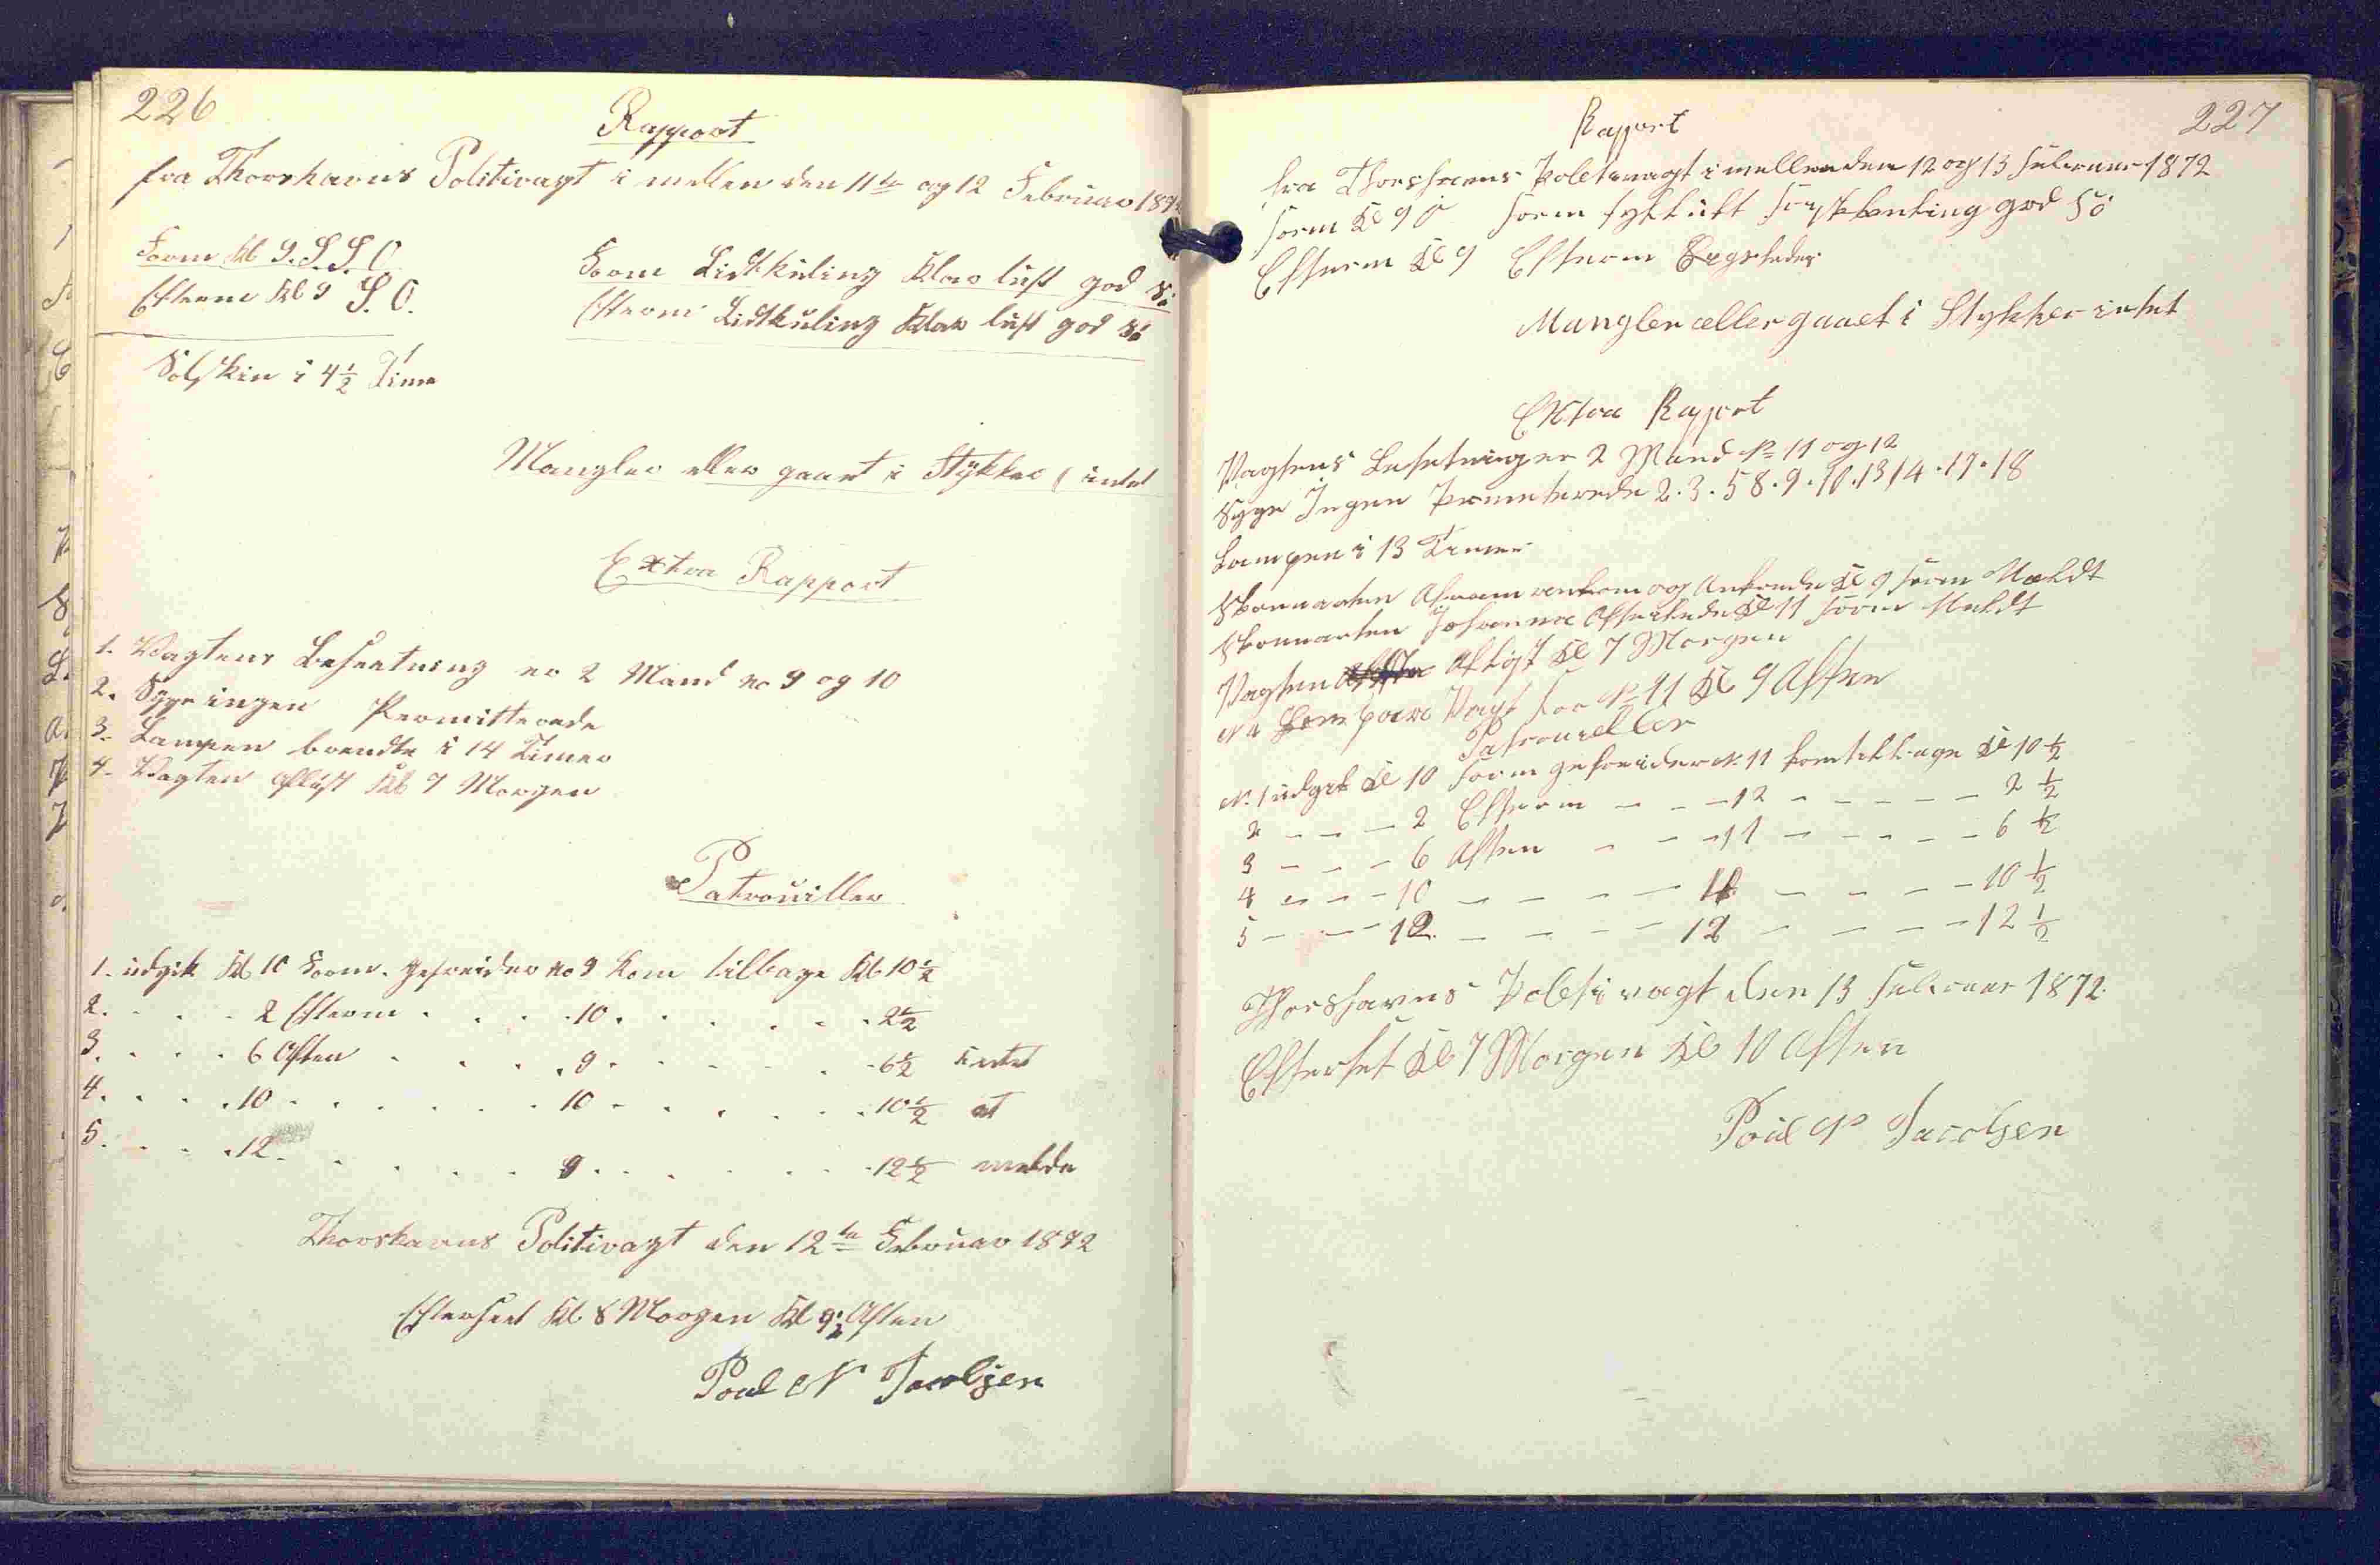 226
Rapport
fra Thorshavns Politivagt i mellem den 11te og 12 Februar 1872
Form Kl 9. S.S.O.
Form Lidtkuling Klar luft god Sö
Efterm Kl 9 S.O.
Efterm Lidtkuling Klar luft god Sö
Solskin i 4½ Time
Mangler eller gaaet i Stykker intet
Extra Rapport
1. Vagtens Besættning er 2 Mand No 9 og 10
2. Syge ingen Permitterede
3. Lampen brendte i 14 Timer
4. Vagten aflöst Kl 7 Morgen
Patrouiller
1. udgik Kl 10 Form. gefreider No 9 Kom tilbage Kl 10½
2. . . . 2 Efterm . . . . 10 . . . . . . 2½
3. . . . 6 Aften . . . . 9 . . . . . . 6½ intet
4. . . . 10 . . . . . . 10 . . . . . . 10½ at
5. . . . 12 . . . . . . 9 . . . . . . 12½ melde
Thorshavns Politivagt den 12te Februar 1872
Efterseet Kl 8 Morgen Kl 9½ Aften
Poul N Jacobsen
227
Rapport
fra Thorshavns Poletivagt i mellem den 12 og 13 Februar 1872
Form Kl 9 O Form tyk luft god Sö
Efterm Kl 9 Efterm
Mangler eller gaaet i Stykker intet
Extra Rapport
Vagtens Besetninger 2 Mand No 11 og 12
Syge Ingen Permeterede 2. 3. 5 8. 9. 10. 13 14. 17. 18
Lampen i 13 Timer
Skonnarten ankom og Ankrede Kl 9 Form Meldt
Skonnarten Johanna Afseilede Kl 11 Form Meldt
Vagten Aflöst Kl 7 Morgen
Vagt for No 11 Kl 9 Aften
Patroueller
N. 1 udgik Kl 10 Form gefreider N. 11 kom tilbage Kl 10½
2 – – – 2 Efterm – – – 12 – – – – – 2½
3 – – – 6 Aften – – – 11 – – – – – 6½
4 – – – 10 – – – – 11 – – – – 10½
5 – – – 12 – – – – 12 – – – – 12½
Thorshavns Poletivagt den 13 Februar 1872
Efterset Kl 7 Morgen Kl 10 Aften
Poul N Jacobsen